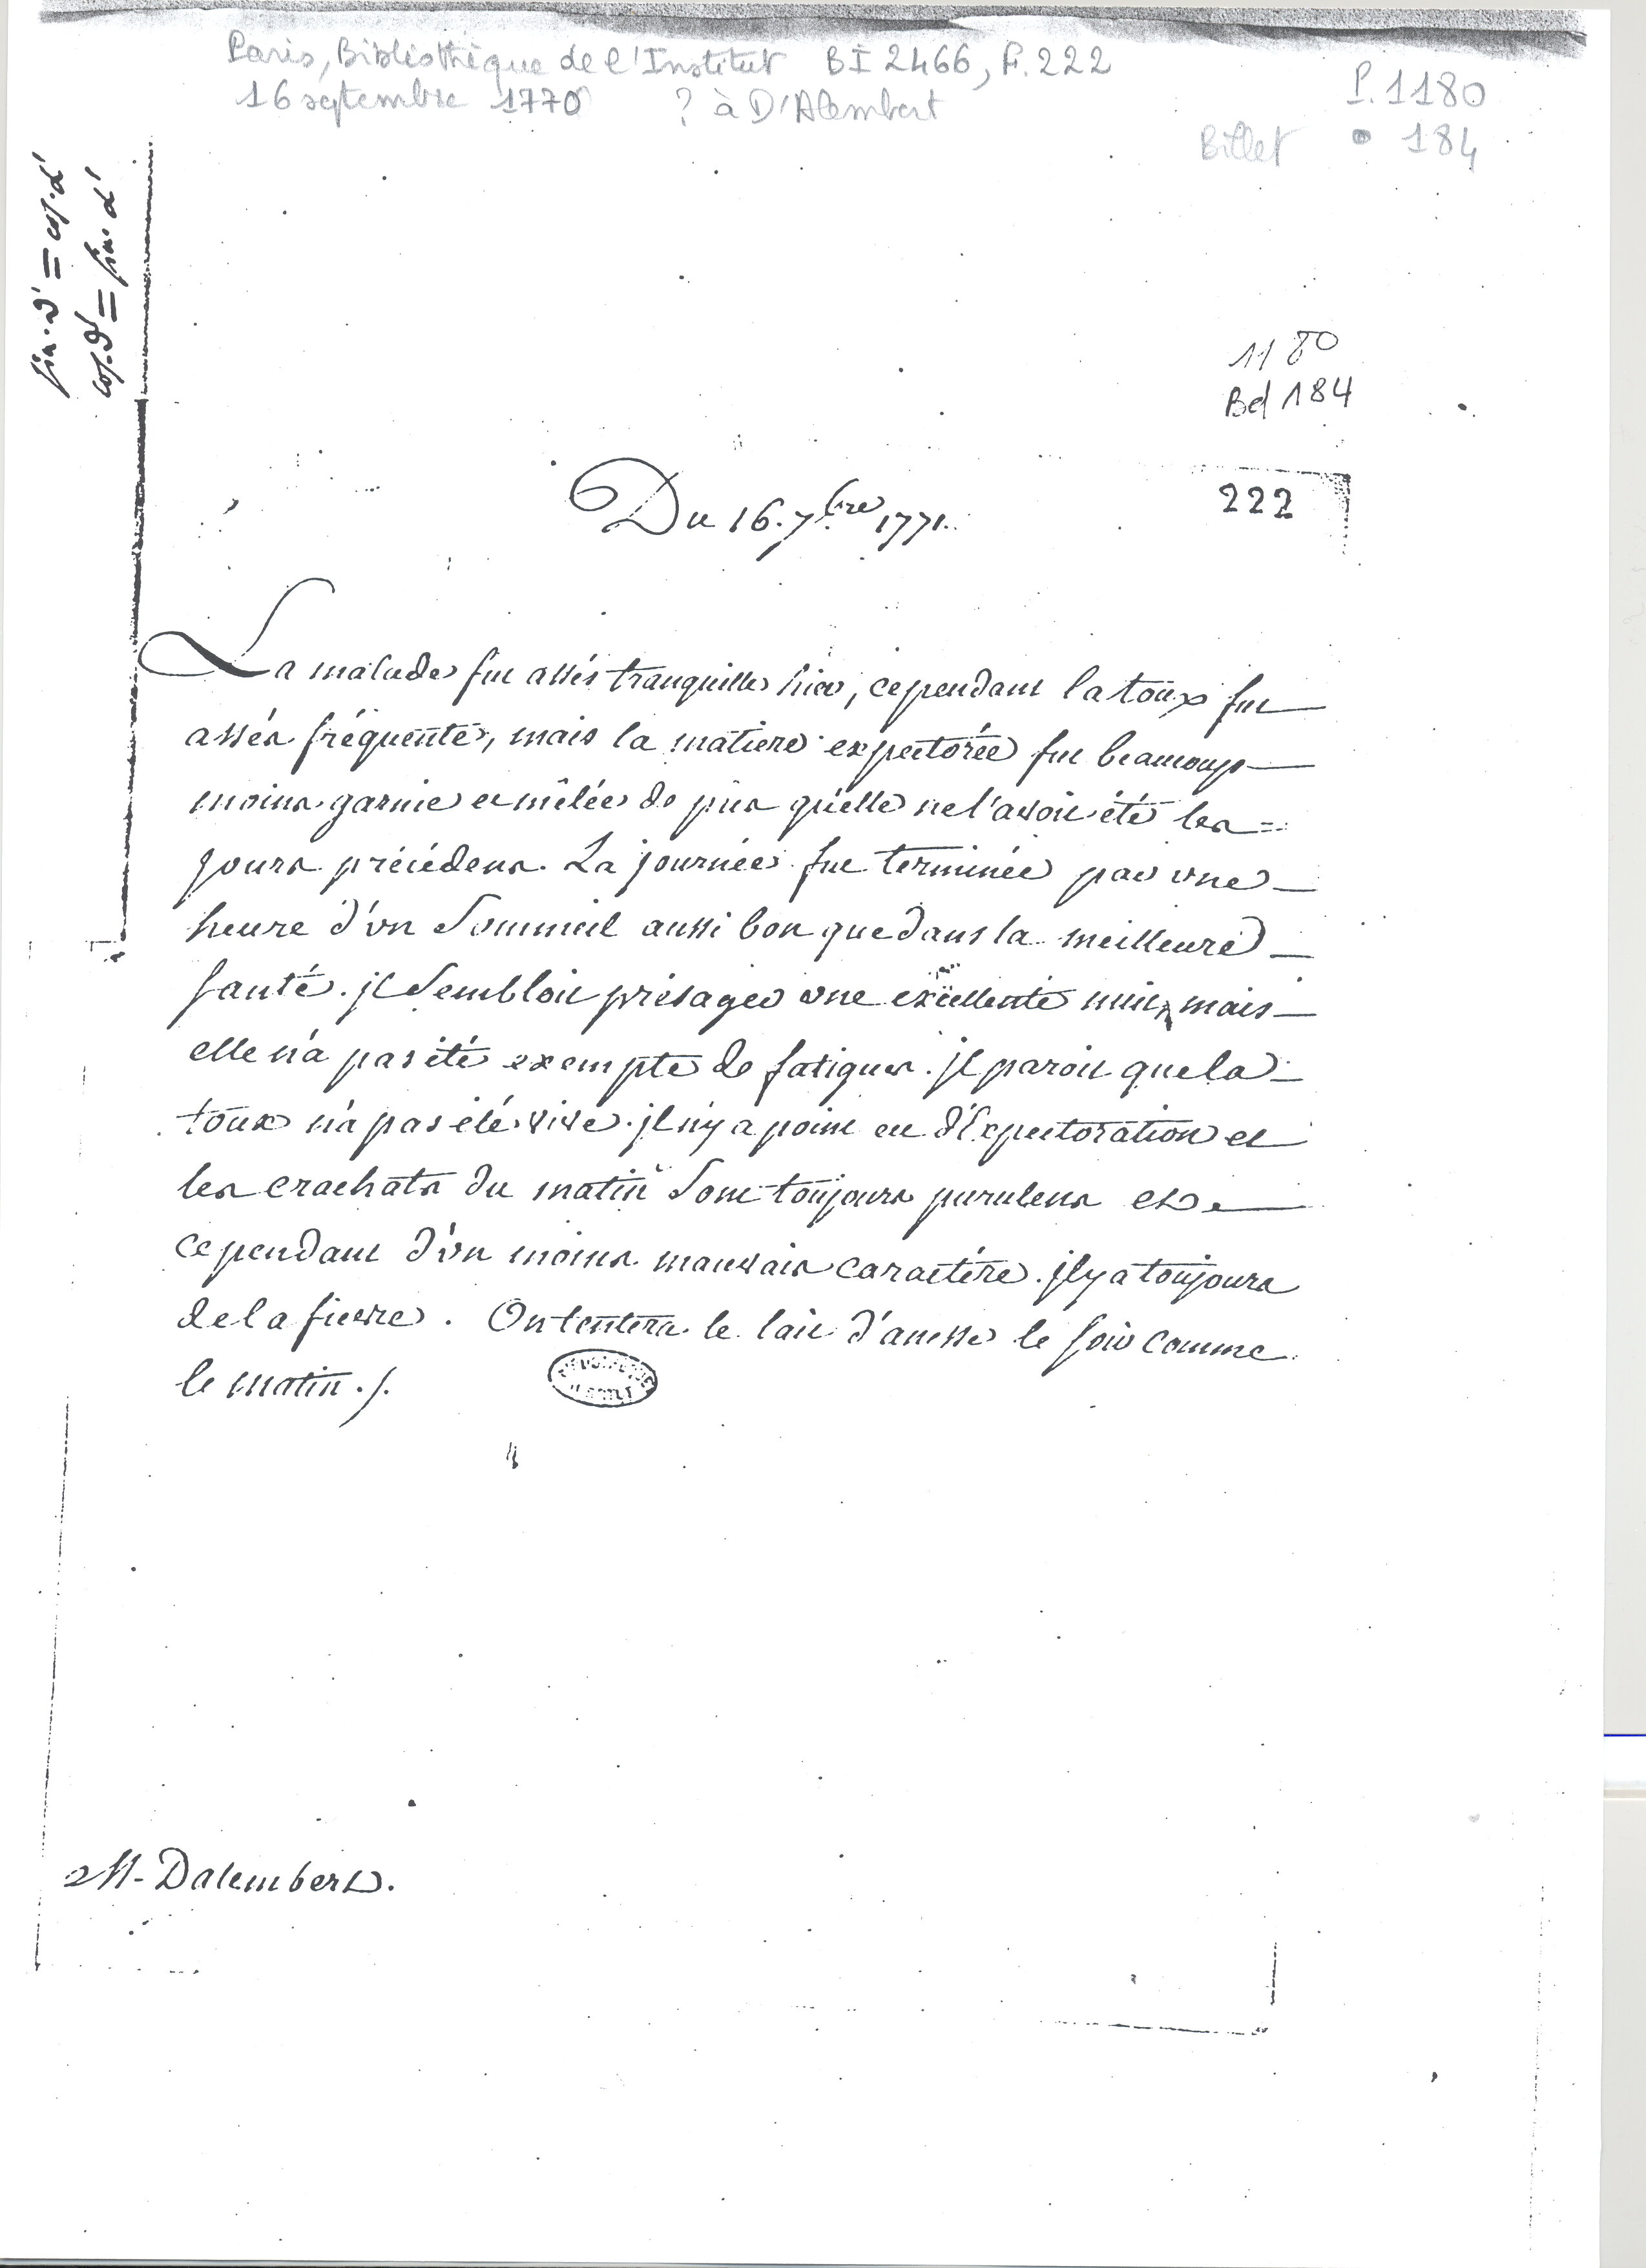 Paris, Bibliothèque de l'Institut BI 2466, F. 222
16 septembre 1770 ? à D'Alembert
P. 1180
Billet 184
sin. ∂' = cos. α'
cos. ∂' = sin. α'
1180
Bd 184
222
Du 16. 7.bre 1771.
La malade fut assés tranquille hier, cependant la toux fut
assés fréquente, mais la matiere expectorée fut beaucoup
moins garnie et mêlée de pus qu'elle ne l'avoit été les =
jours précédens. La journée fut terminée par une
heure d'un sommeil aussi bon que dans la meilleure
santé. jl sembloit présager une excellente nuit, mais
elle n'a pas été exempte de fatigues. jl paroit que la
toux n'a pas été vive. jl n'y a point eu d'Expectoration et
les crachats du matin sont toujours purulens et
cependant d'un moins mauvais caractére. jl y a toujours
de la fievre. On tentera le lait d'anesse le soir comme
le matin ./.
M. Dalembert.